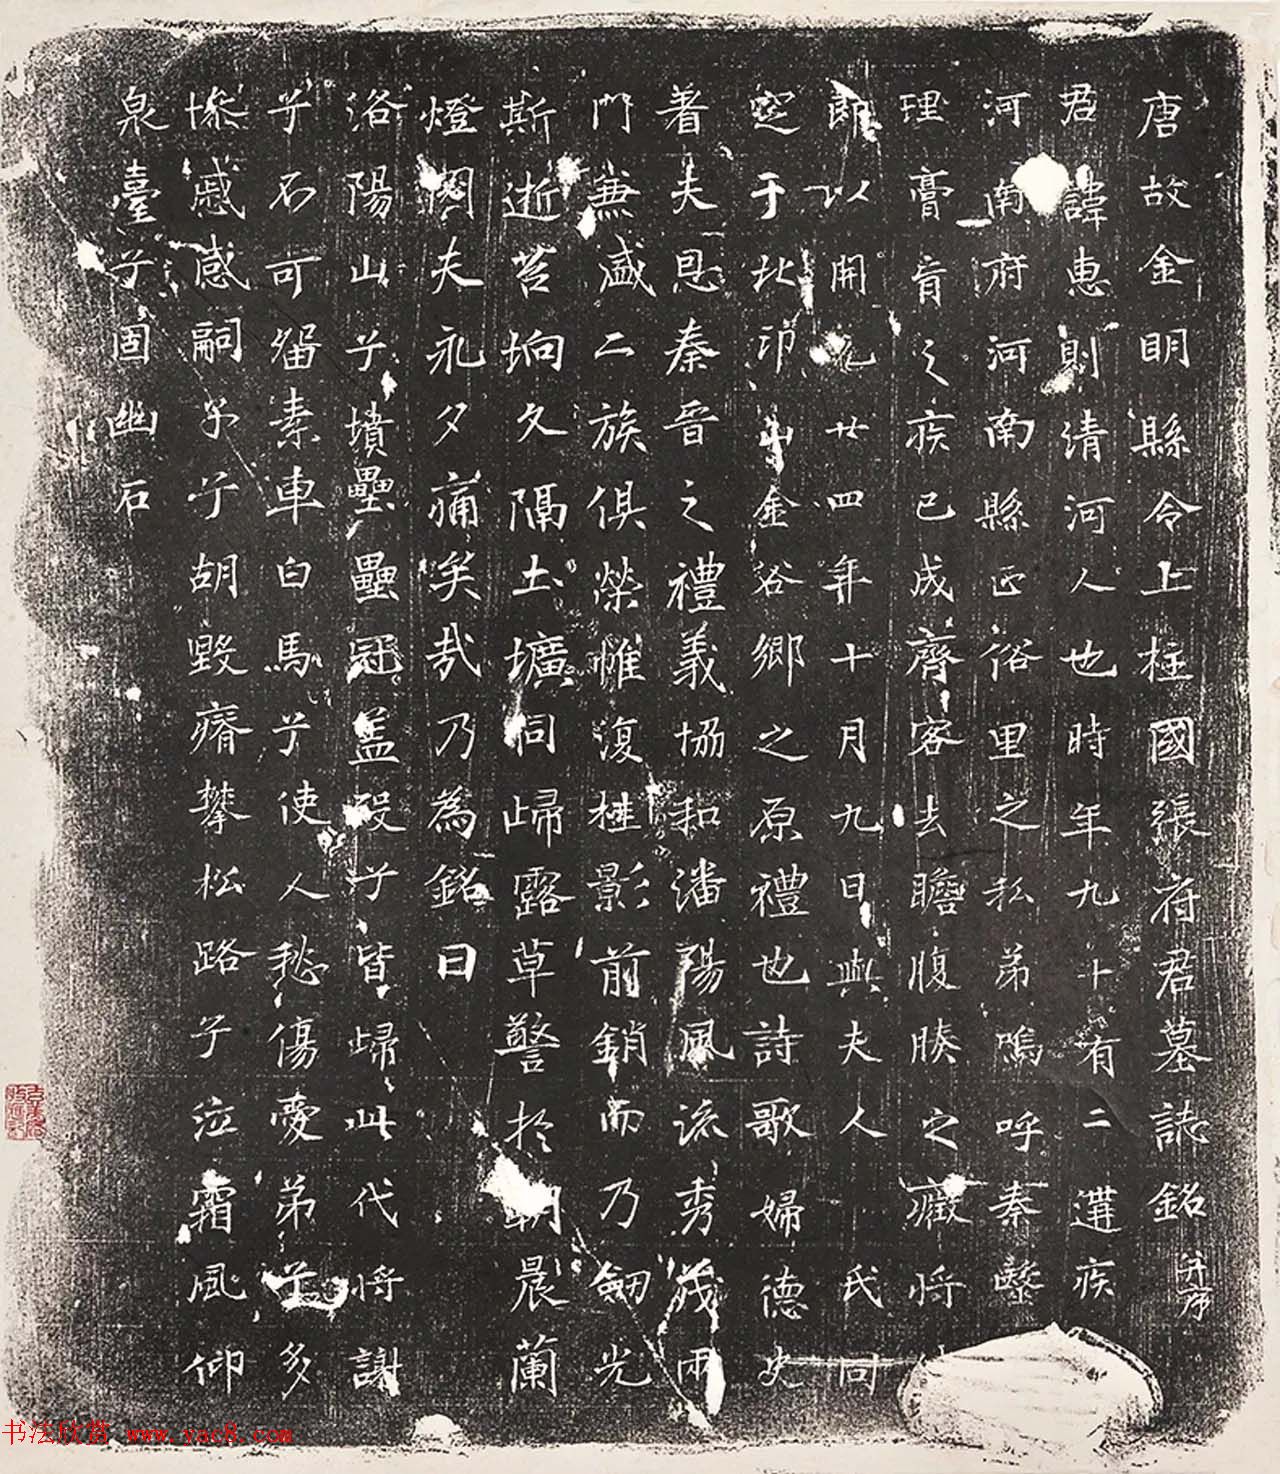 唐故金明縣令上柱國張府君墓誌銘并序
君諱惠則清河人也時年九十有二遘疾
河南府河南縣正俗里之私弟嗚呼秦毉
理膏肓之疾已成齊客去瞻腹腠之癥將
即以開元廿四年十月九日與夫人氏同
窆于北邙山金谷鄉之原禮也詩歌婦德史
著夫恩秦晉之禮義協和潘陽風流秀茂兩
門兼盛二族俱榮惟復桂影前銷而乃劒光
斯逝苔埛久隔土壙同歸露草警於朝晨蘭
燈罔夫永夕痛矣哉乃為銘曰
洛陽山兮兮墳壘壘冠盖歿兮皆歸此代將謝
兮石可留素車白馬兮使人愁傷愛弟兮多
慘慼感嗣子兮胡毀瘠攀松路兮泣霜風仰
泉臺兮固幽石
书法欣赏 www.yac8.com